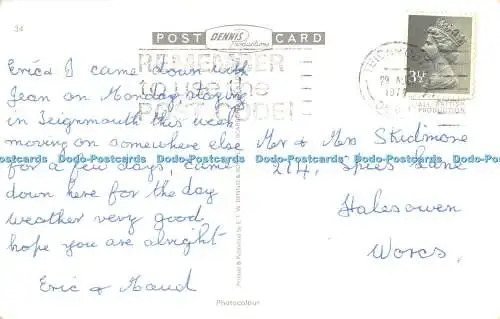 34
POST DENNIS Productions CARD
REMEMBER
to use the
POST CODE!
TEIGNMOUTH
29
3½P
ALL BRITISH
PRODUCTION
Erica & I came down with
Jean on Monday, staying
in Teignmouth this week
moving on somewhere else
for a few days, came
down here for the day
weather very good
hope you are alright
Eric & Maud
Mr & Mrs Skidmore
274, Spies Lane
Halesowen
Worcs.
Dodo-Postcards Dodo-Postcards Dodo-Postcards Dodo-Postcards Dodo-Postcards
Printed & Published by E. T. W. DENNIS &
Photocolour